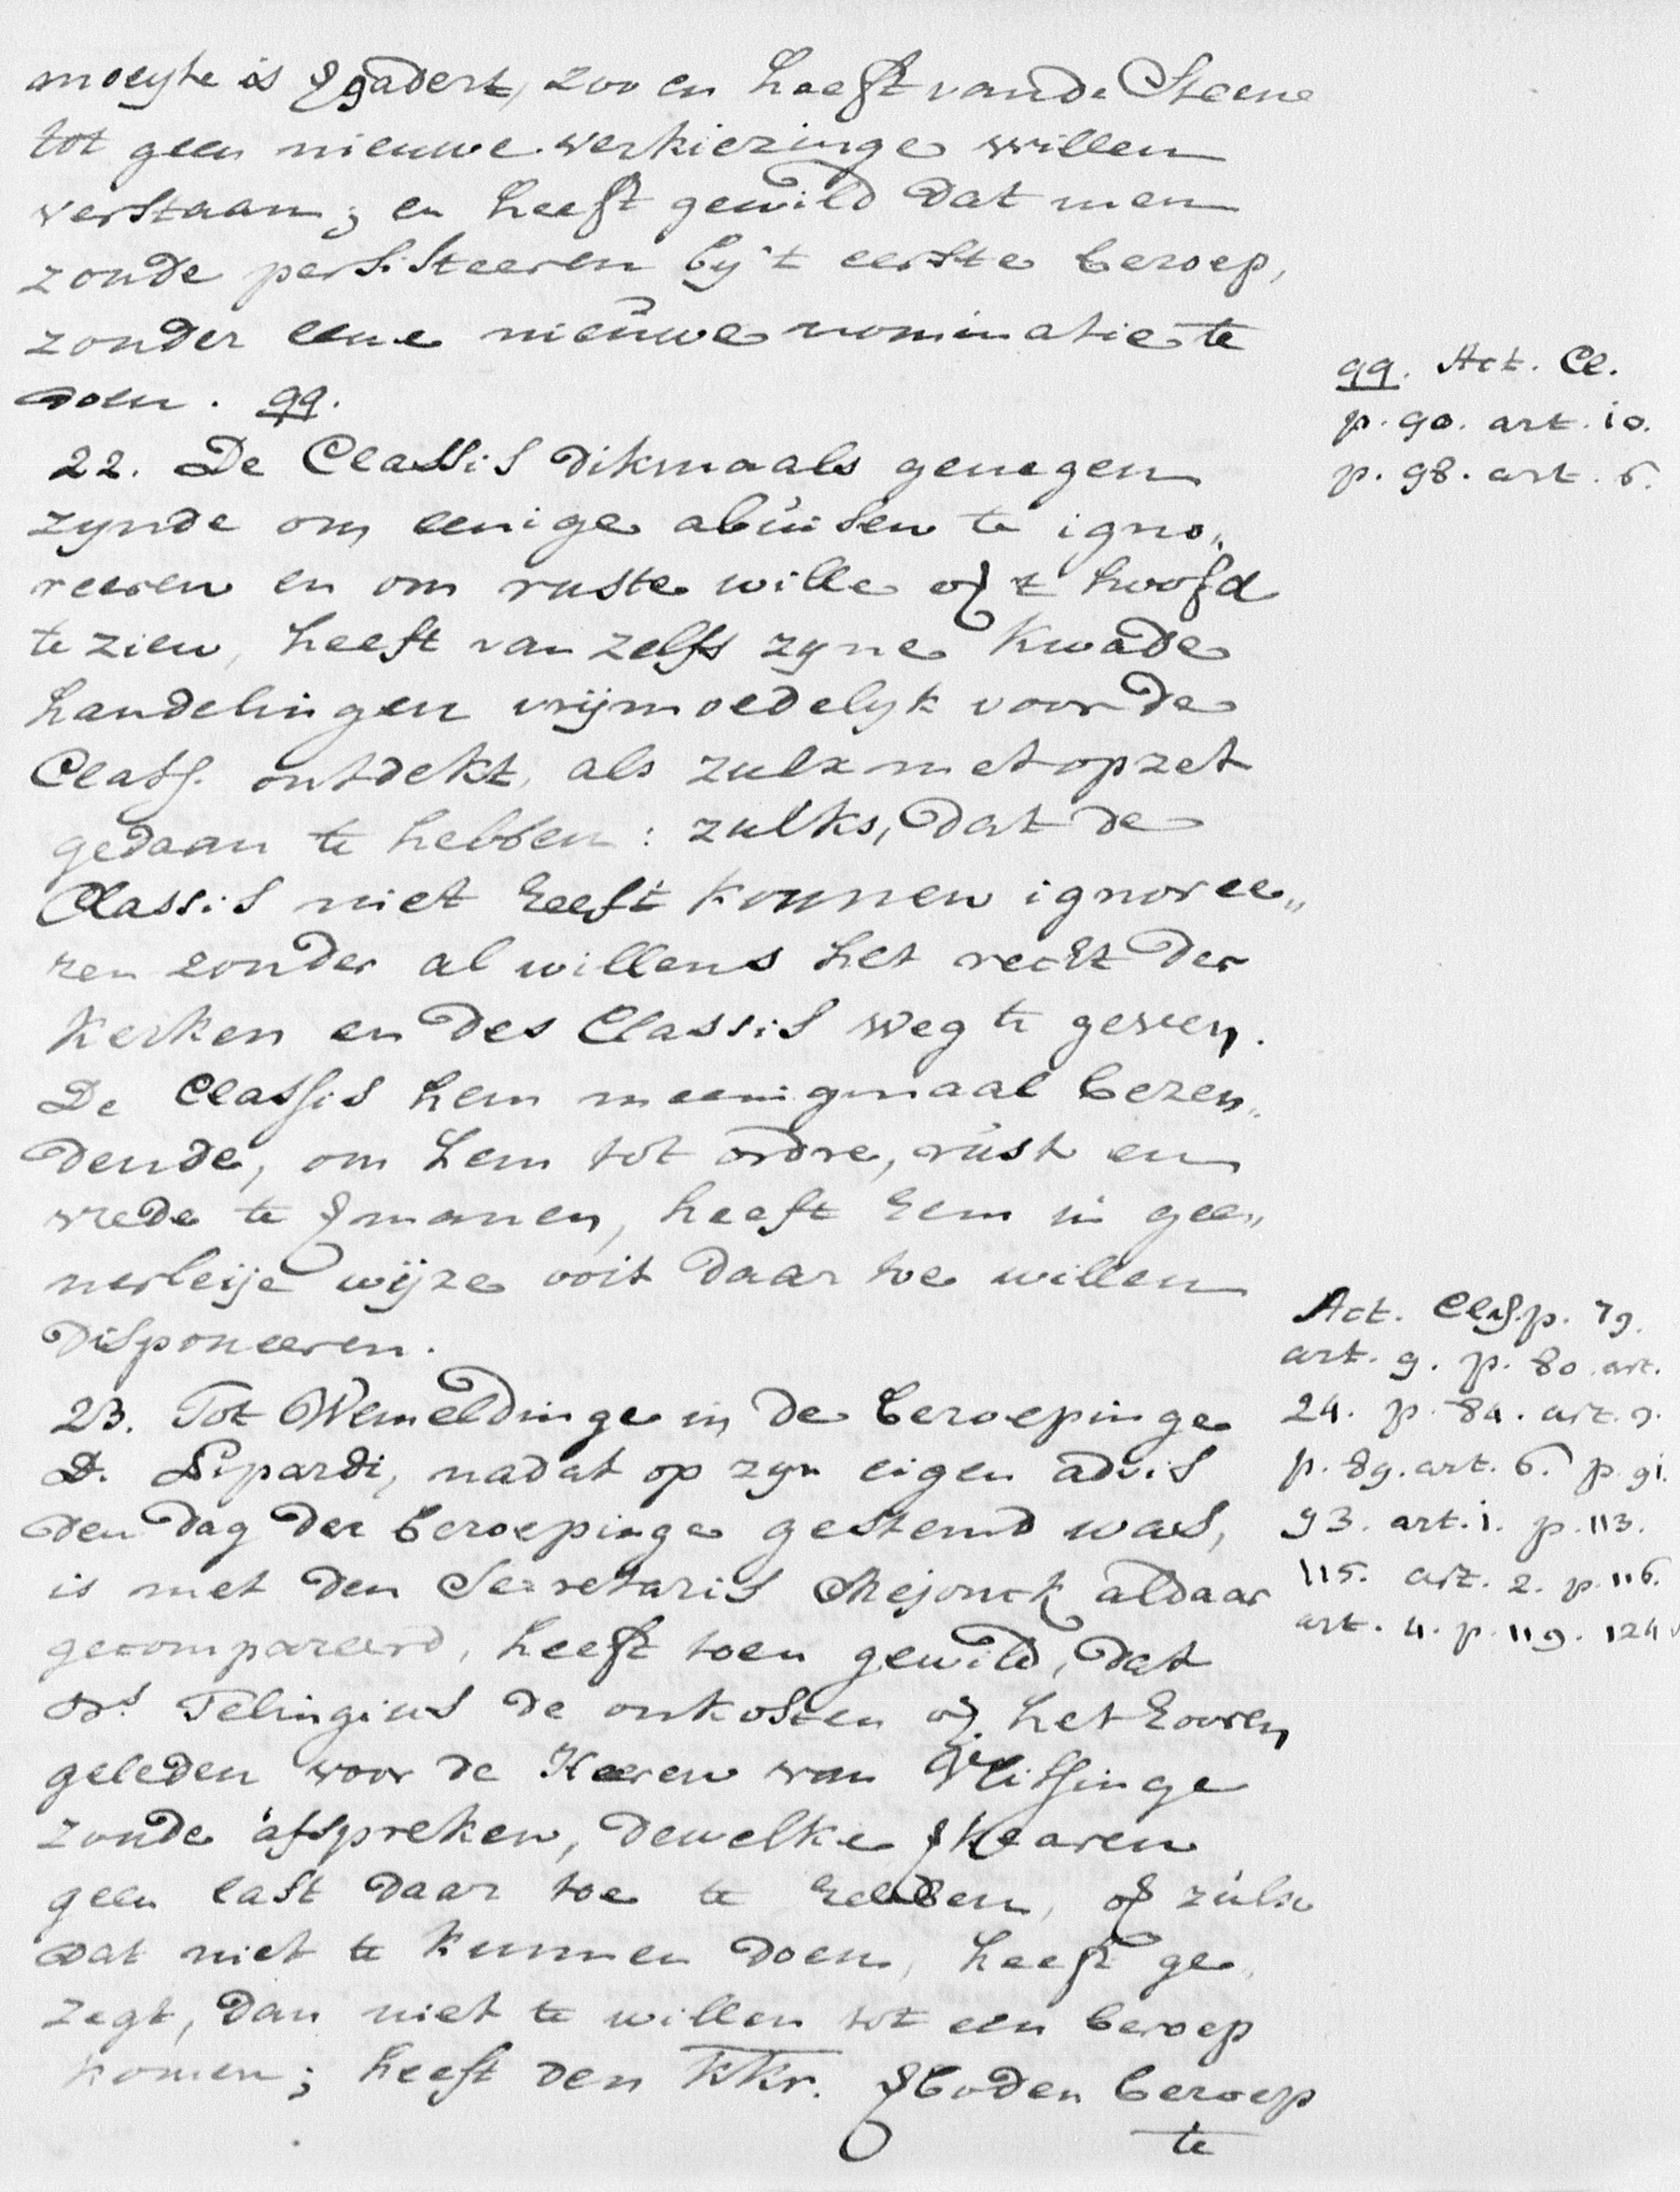 moeyte is vgadert, zoo en heeft vande Steene
tot geen nieuwe verkiezinge willen
verstaan; en heeft gewild dat men
zoude persisteeren by 't eerste beroep,
zonder eene nieuwe nominatie te
doen. qq.
qq. Act. Cl.
p. 90. art. 10.
p. 98. art. 6.
22. De Classis dikmaals genegen
zynde om eenige abuisen te igno„
reeren en om ruste wille ov't hoofd
te zien, heeft van zelfs zyne kwade
handelingen vrijmoedelyk voor de
Class. ontdekt, als zulx met opzet
gedaan te hebben: zulks, dat de
Classis niet heeft konnen ignoree„
ren zonder al willens het recht der
Kerken en des Classis weg te geven.
De Classis hem meenigmaal bezen„
dende, om hem tot ordre, rust en
vrede te vmanen, heeft hem in gee„
nerleije wijze ooit daar toe willen
disponeeren.
23. Tot Wemeldinge in de beroepinge
D. Lipardi, nadat op zyn eigen advis
den dag der beroepinge gestemd was,
is met den Secretaris Mejonck aldaar
gecompareerd, heeft toen gewild, dat
Ds Telingius de onkosten ov. het hooren
geleden voor de Heeren van Vlissinge
zoude afspreken, dewelke vklaren
geen last daar toe te hebben, of zulx
dat niet te kunnen doen, heeft ge„
zegt, dan niet te willen tot een beroep
komen; heeft den kkr. vboden beroep
te
Act. Class. p. 79.
art. 9. p. 80. art.
24. p. 8a. art. 9.
p. 89. art. 6. p. 91.
93. art. 1. p. 113.
115. art. 2. p. 116.
art. 4. p. 119. 124